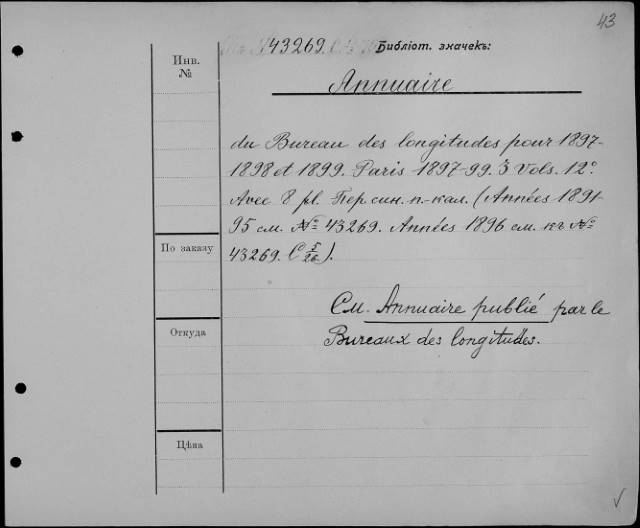 43
43269. Библіот. значекъ:
Инв.
№
Annuaire
du Bureau des longitudes pour 1897-
1898 et 1899. Paris 1897-99. 3 Vols. 12°.
Avec 8 pl. Пер. син. п-кал. (Années 1891-
95 см. № 43269. Années 1896 см. къ №
По заказу
43269. C 5/26).
См. Annuaire publié par le
Откуда
Bureaux des longitudes.
Цѣна